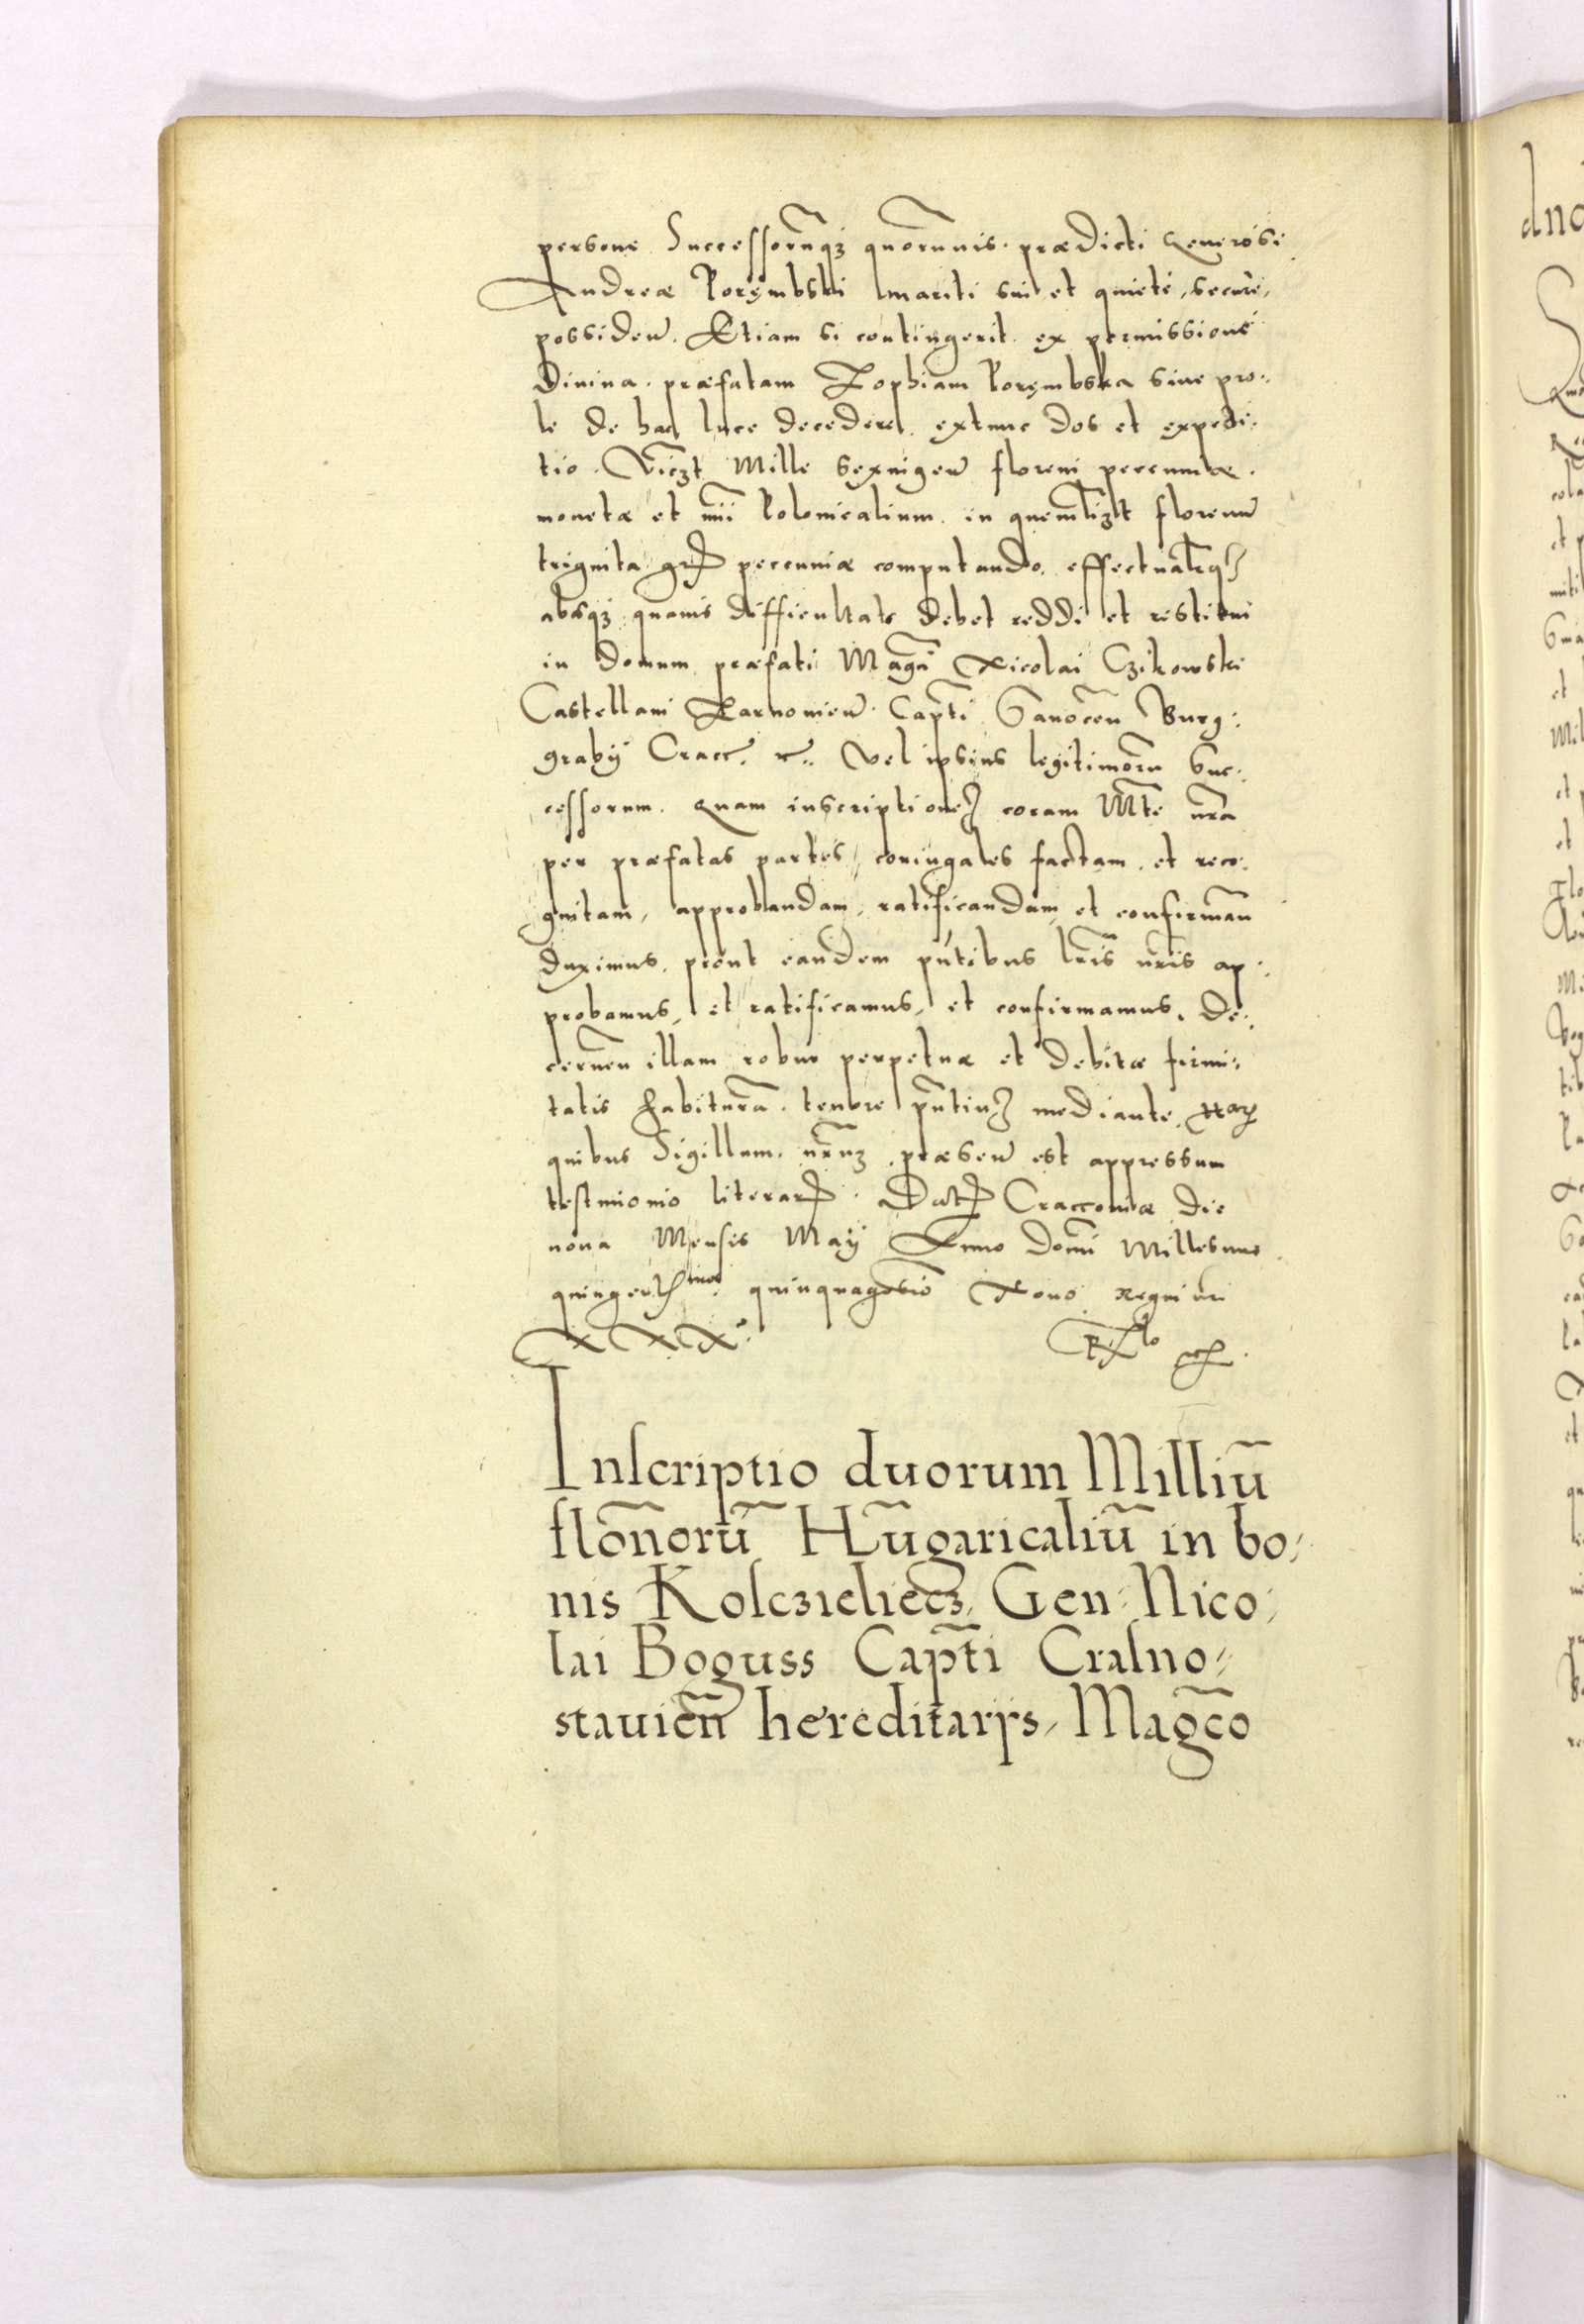 persone Successorūqꝫ quorūuis. prædicti Generosi
Andreæ Poręmbski mariti sui et quietè, securè,
possideñ. Etiam si contingerit. ex permissione
Diuina. præfatam Zophiam Poręmbska sine pro-
le de hac luce decedere. extunc dos et expedi-
tio. Vicꝫt Mille sexingeñ floreni peccuniæ.
monetæ et Polonicalium. in florenu
trignita peccuniæ computando. effectualrqꝫ
absqꝫ quauis difficultate debet reddi et restitui
in domum præfati Magci Nicolai Czikowski
Castellani Tarnouieñ. Capti Sanoceñ Burg:
grabij Cracc. Vel ipsius legitimorū Suc:
cessorum. Quam inscriptionem coram Mte nra
per præfatas partes coniugales factam. et reco:
gnitam, approbandam, ratificandam et confirmañ
duximus. prout eandem pñtibus lris nris ap:
probamus, et ratificamus, et confirmamus. De:
cerneñ illam robur perpetuæ et debitæ firmi:
tatis habiturā. tenore pñtiuꝫ mediante.
quibus Sigillum. nrūꝫ. præseñ est appressum
testmionio literarꝝ. Datꝝ Cracconiæ die
nona Mensis Maij Anno Domi Millesimo
quingentmo quinquagesio Nono Regni nri
XXX°:
Inscriptio duorum Milliū
flōnorū Hūgaricaliū in bo:
nis Kolczieliecꝫ, Gen: Nico:
lai Boguss Cap̄ti Crasno:
stauieñ hereditarijs, Magc̄o